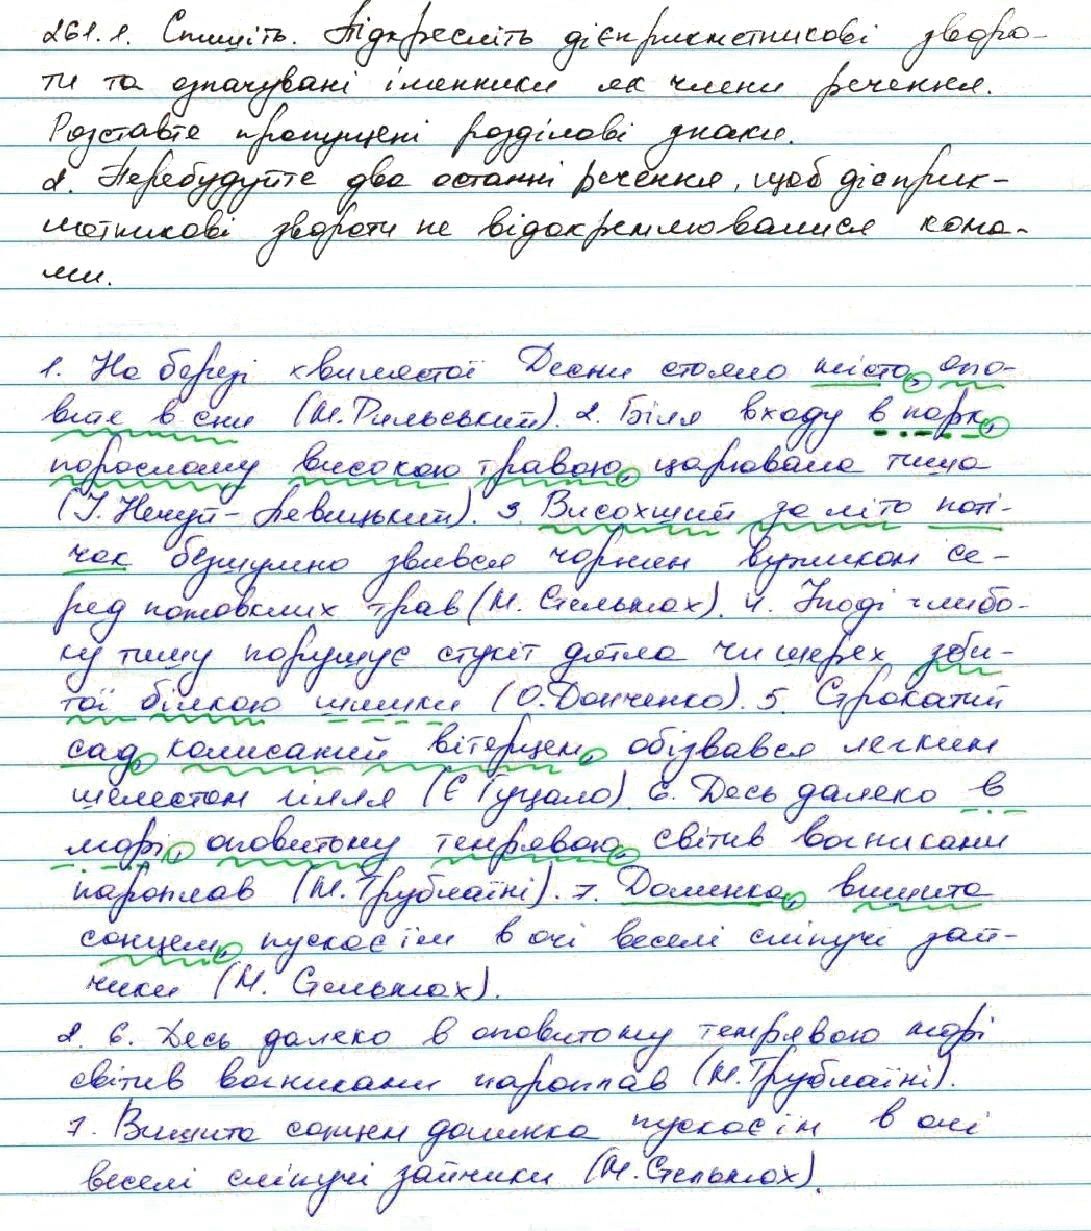 261.1. Спишіть. Підкресліть дієприкметникові зворо-
ти та означувані іменники як члени речення.
Розставте пропущені розділові знаки.
2. Перебудуйте два останні речення, щоб дієприк-
метникові звороти не відокремлювалися кома-
ми.
1. На березі хвилястої Десни стояло місто, опо-
вите в сни (М. Рильський). 2. Біля входу в парк,
порослому високою травою, царювала тиша
(І. Нечуй-Левицький). 3. Висохший за літо поті-
чок безшумно звивався чорним вужиком се-
ред пожовклих трав (М. Стельмах). 4. Іноді глибо-
ку тишу порушує стукіт дятла чи шерех зби-
тої білкою шишки (О. Донченко). 5. Строкатий
сад, колисаний вітерцем, обізвався легким
шелестом гілля (Є Гуцало). 6. Десь далеко в
морі, оповитому темрявою, світив вогниками
пароплав (М. Трублаїні). 7. Долинка, вишита
сонцем, пускає їм в очі веселі сліпучі зай-
чики (М. Стельмах).
2. 6. Десь далеко в оповитому темрявою морі
світив вогниками пароплав (М. Трублаїні).
7. Вишита сонцем долинка пускає їм в очі
веселі сліпучі зайчики (М. Стельмах).